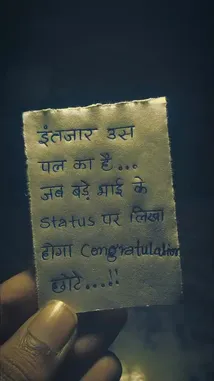 इंतजार उस
पल का है...
जब बड़े भाई के
Status पर लिखा
होगा Congratulation
छोटे...!!